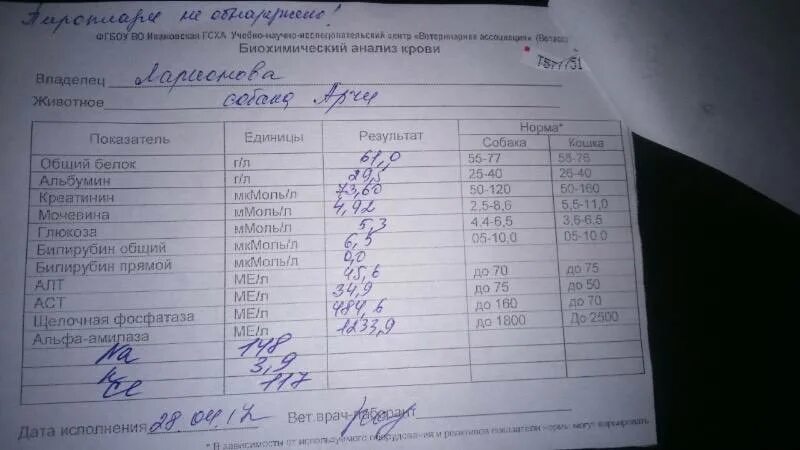 Пироплазм не обнаружено!
ФГБОУ ВО Ивановская ГСХА Учебно-научно-исследовательский центр «Ветеринарная ассоциация»
Биохимический анализ крови
Владелец Ларионова
Животное собака Арчи
Показатель Единицы Результат Норма*
Собака Кошка
Общий белок г/л 61,0 55-77
Альбумин г/л 29,5 25-40 26-40
Креатинин мкМоль/л 73,60 50-120 50-160
Мочевина мМоль/л 4,92 2,5-8,6 5,5-11,0
Глюкоза мМоль/л 5,3 4.4-6,5 3,6-6,5
Билирубин общий мкМоль/л 6,5 05-10,0 05-10.0
Билирубин прямой мкМоль/л 0,0
АЛТ МЕ/л 45,6 до 70 до 75
АСТ МЕ/л 34,9 до 75 до 50
Щелочная фосфатаза МЕ/л 484,6 до 160 до 70
Альфа-амилаза МЕ/л 1233,9 до 1800 До 2500
Na 148
K 3,9
Cl 117
Дата исполнения 28.04.17 Вет.врач-лаборант
* В зависимости от используемого оборудования и реактивов показатели нормы могут варьировать